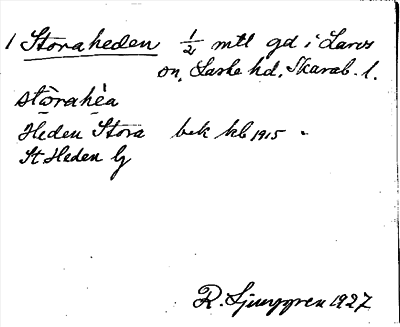 1 Storaheden 1/2 mtl gd i Larvs
sn, Laske hd, Skarab. l.
stòrahèa
Heden Stora bek kb 1915
St Heden G
R. Ljunggren 1927